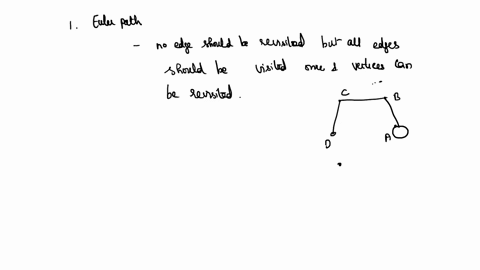 1. Euler path
- no edge should be revisited but all edges
should be visited once & vertices can
be revisited.
C
B
D
A